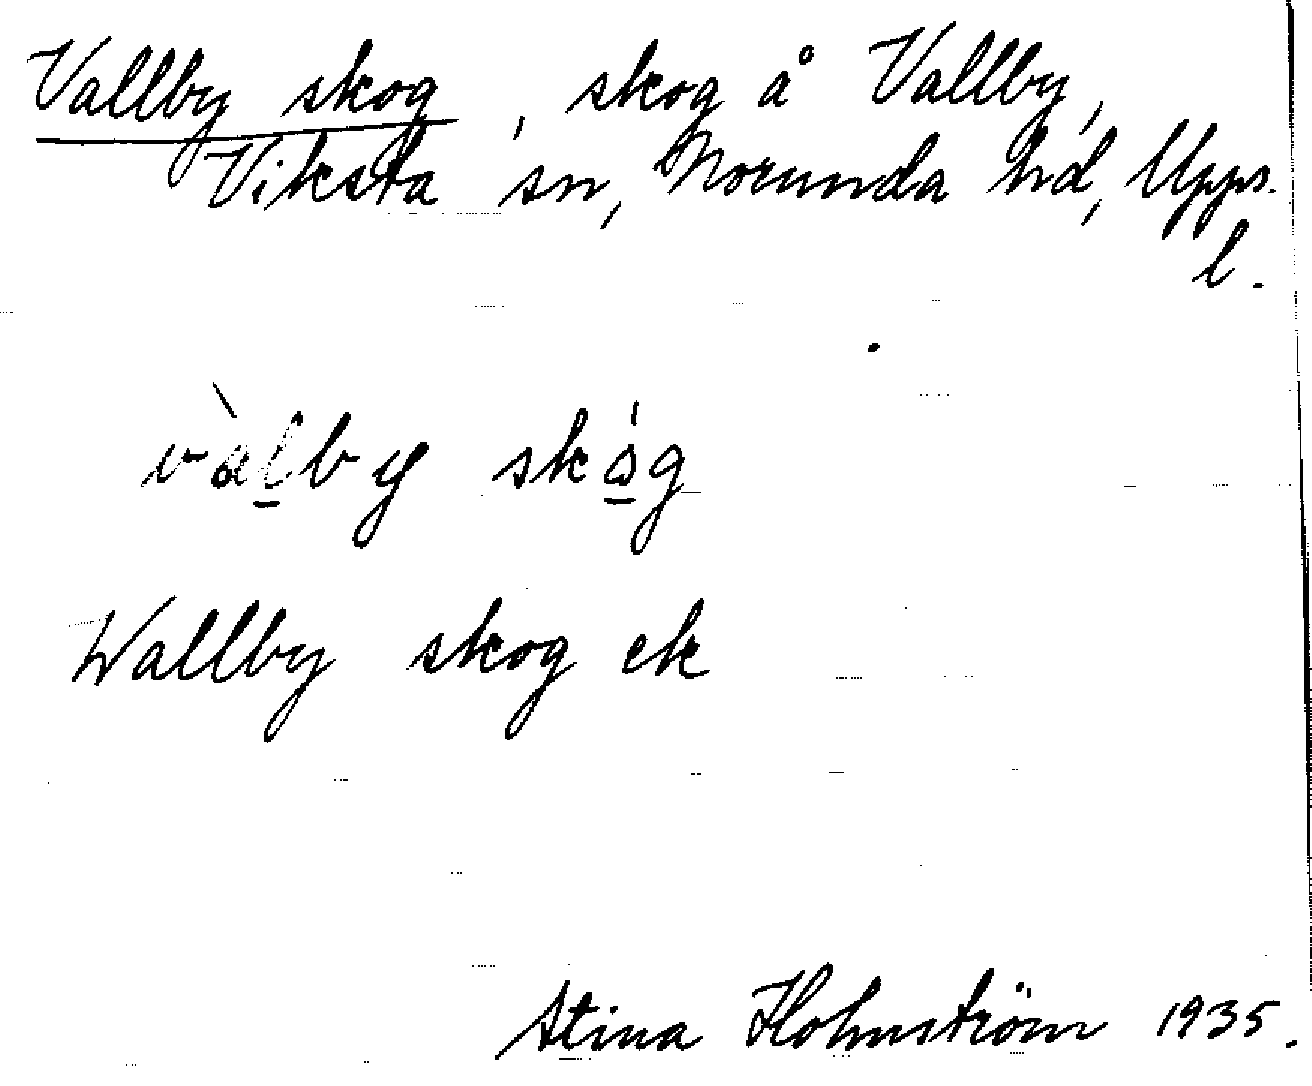 Vallby skog, skog å Vallby,
Viksta sn, Norunda hd, Upps.
l.
vàlby skóg
Wallby skog ek
Stina Holmström 1935.